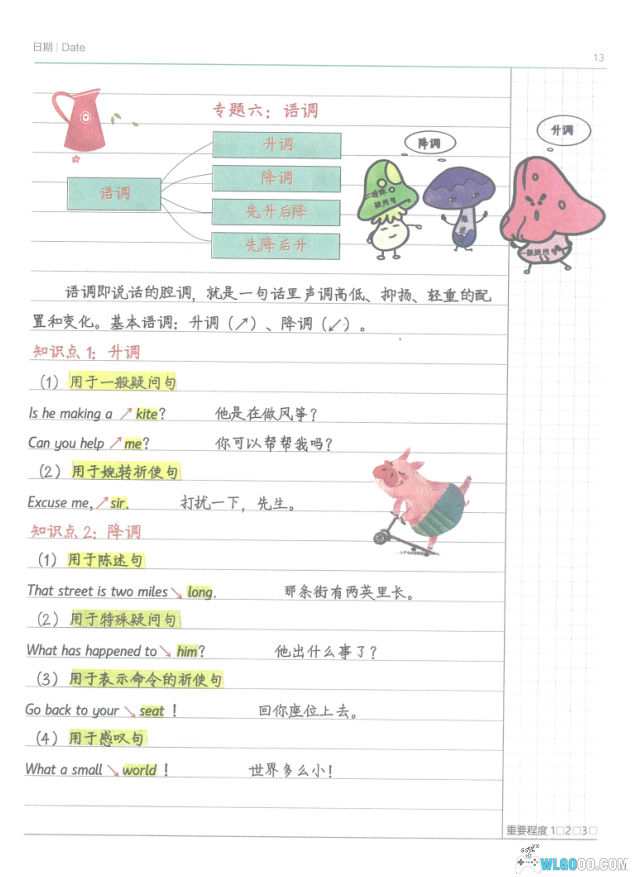 日期 | Date
13
专题六：语调
升调
降调
升调
语调
降调
先升后降
先降后升
语调即说话的腔调，就是一句话里声调高低、抑扬、轻重的配
置和变化。基本语调：升调（↗）、降调（↙）。
知识点1：升调
（1）用于一般疑问句
Is he making a ↗kite? 他是在做风筝？
Can you help ↗me? 你可以帮帮我吗？
（2）用于婉转祈使句
Excuse me,↗sir. 打扰一下，先生。
知识点2：降调
（1）用于陈述句
That street is two miles↘long. 那条街有两英里长。
（2）用于特殊疑问句
What has happened to↘him? 他出什么事了？
（3）用于表示命令的祈使句
Go back to your↘seat！ 回你座位上去。
（4）用于感叹句
What a small↘world！ 世界多么小！
重要程度 1□2□3□
WLGOOO.COM